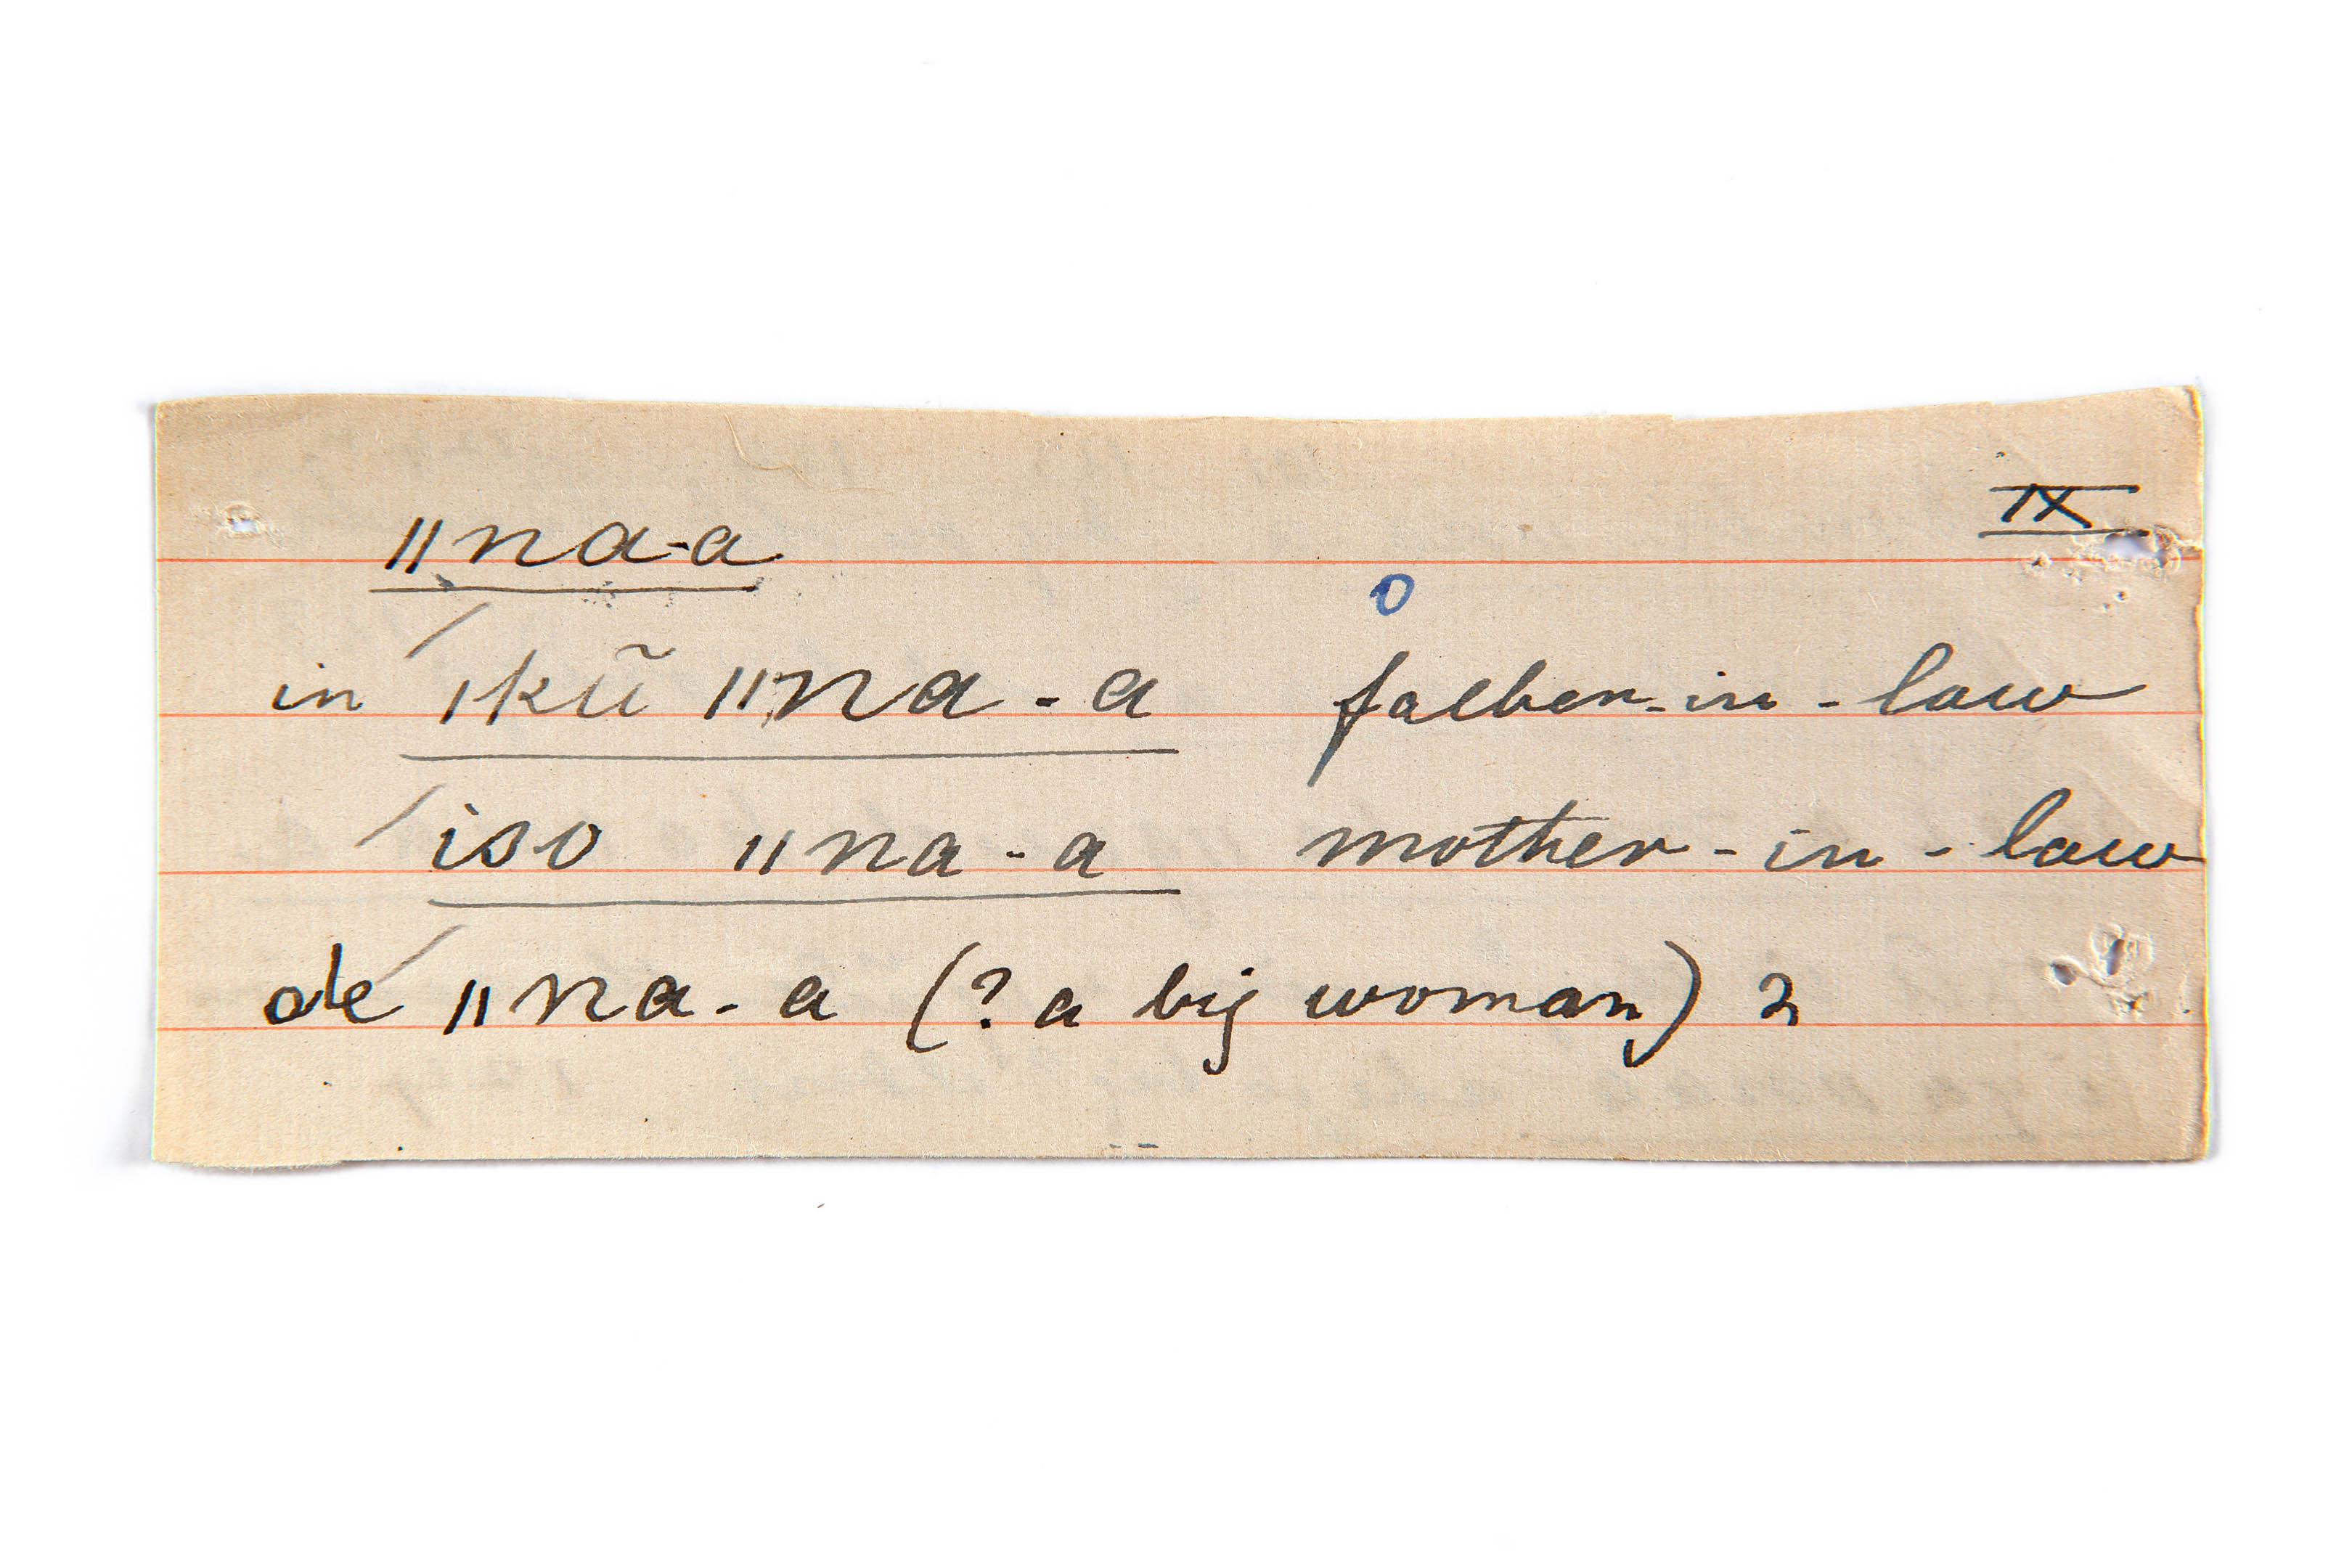 ǁna-a IX
o
in ǀkũ ǁna-a father-in-law
iso ǁna-a mother-in-law
de ǁna-a (? a big woman) 2